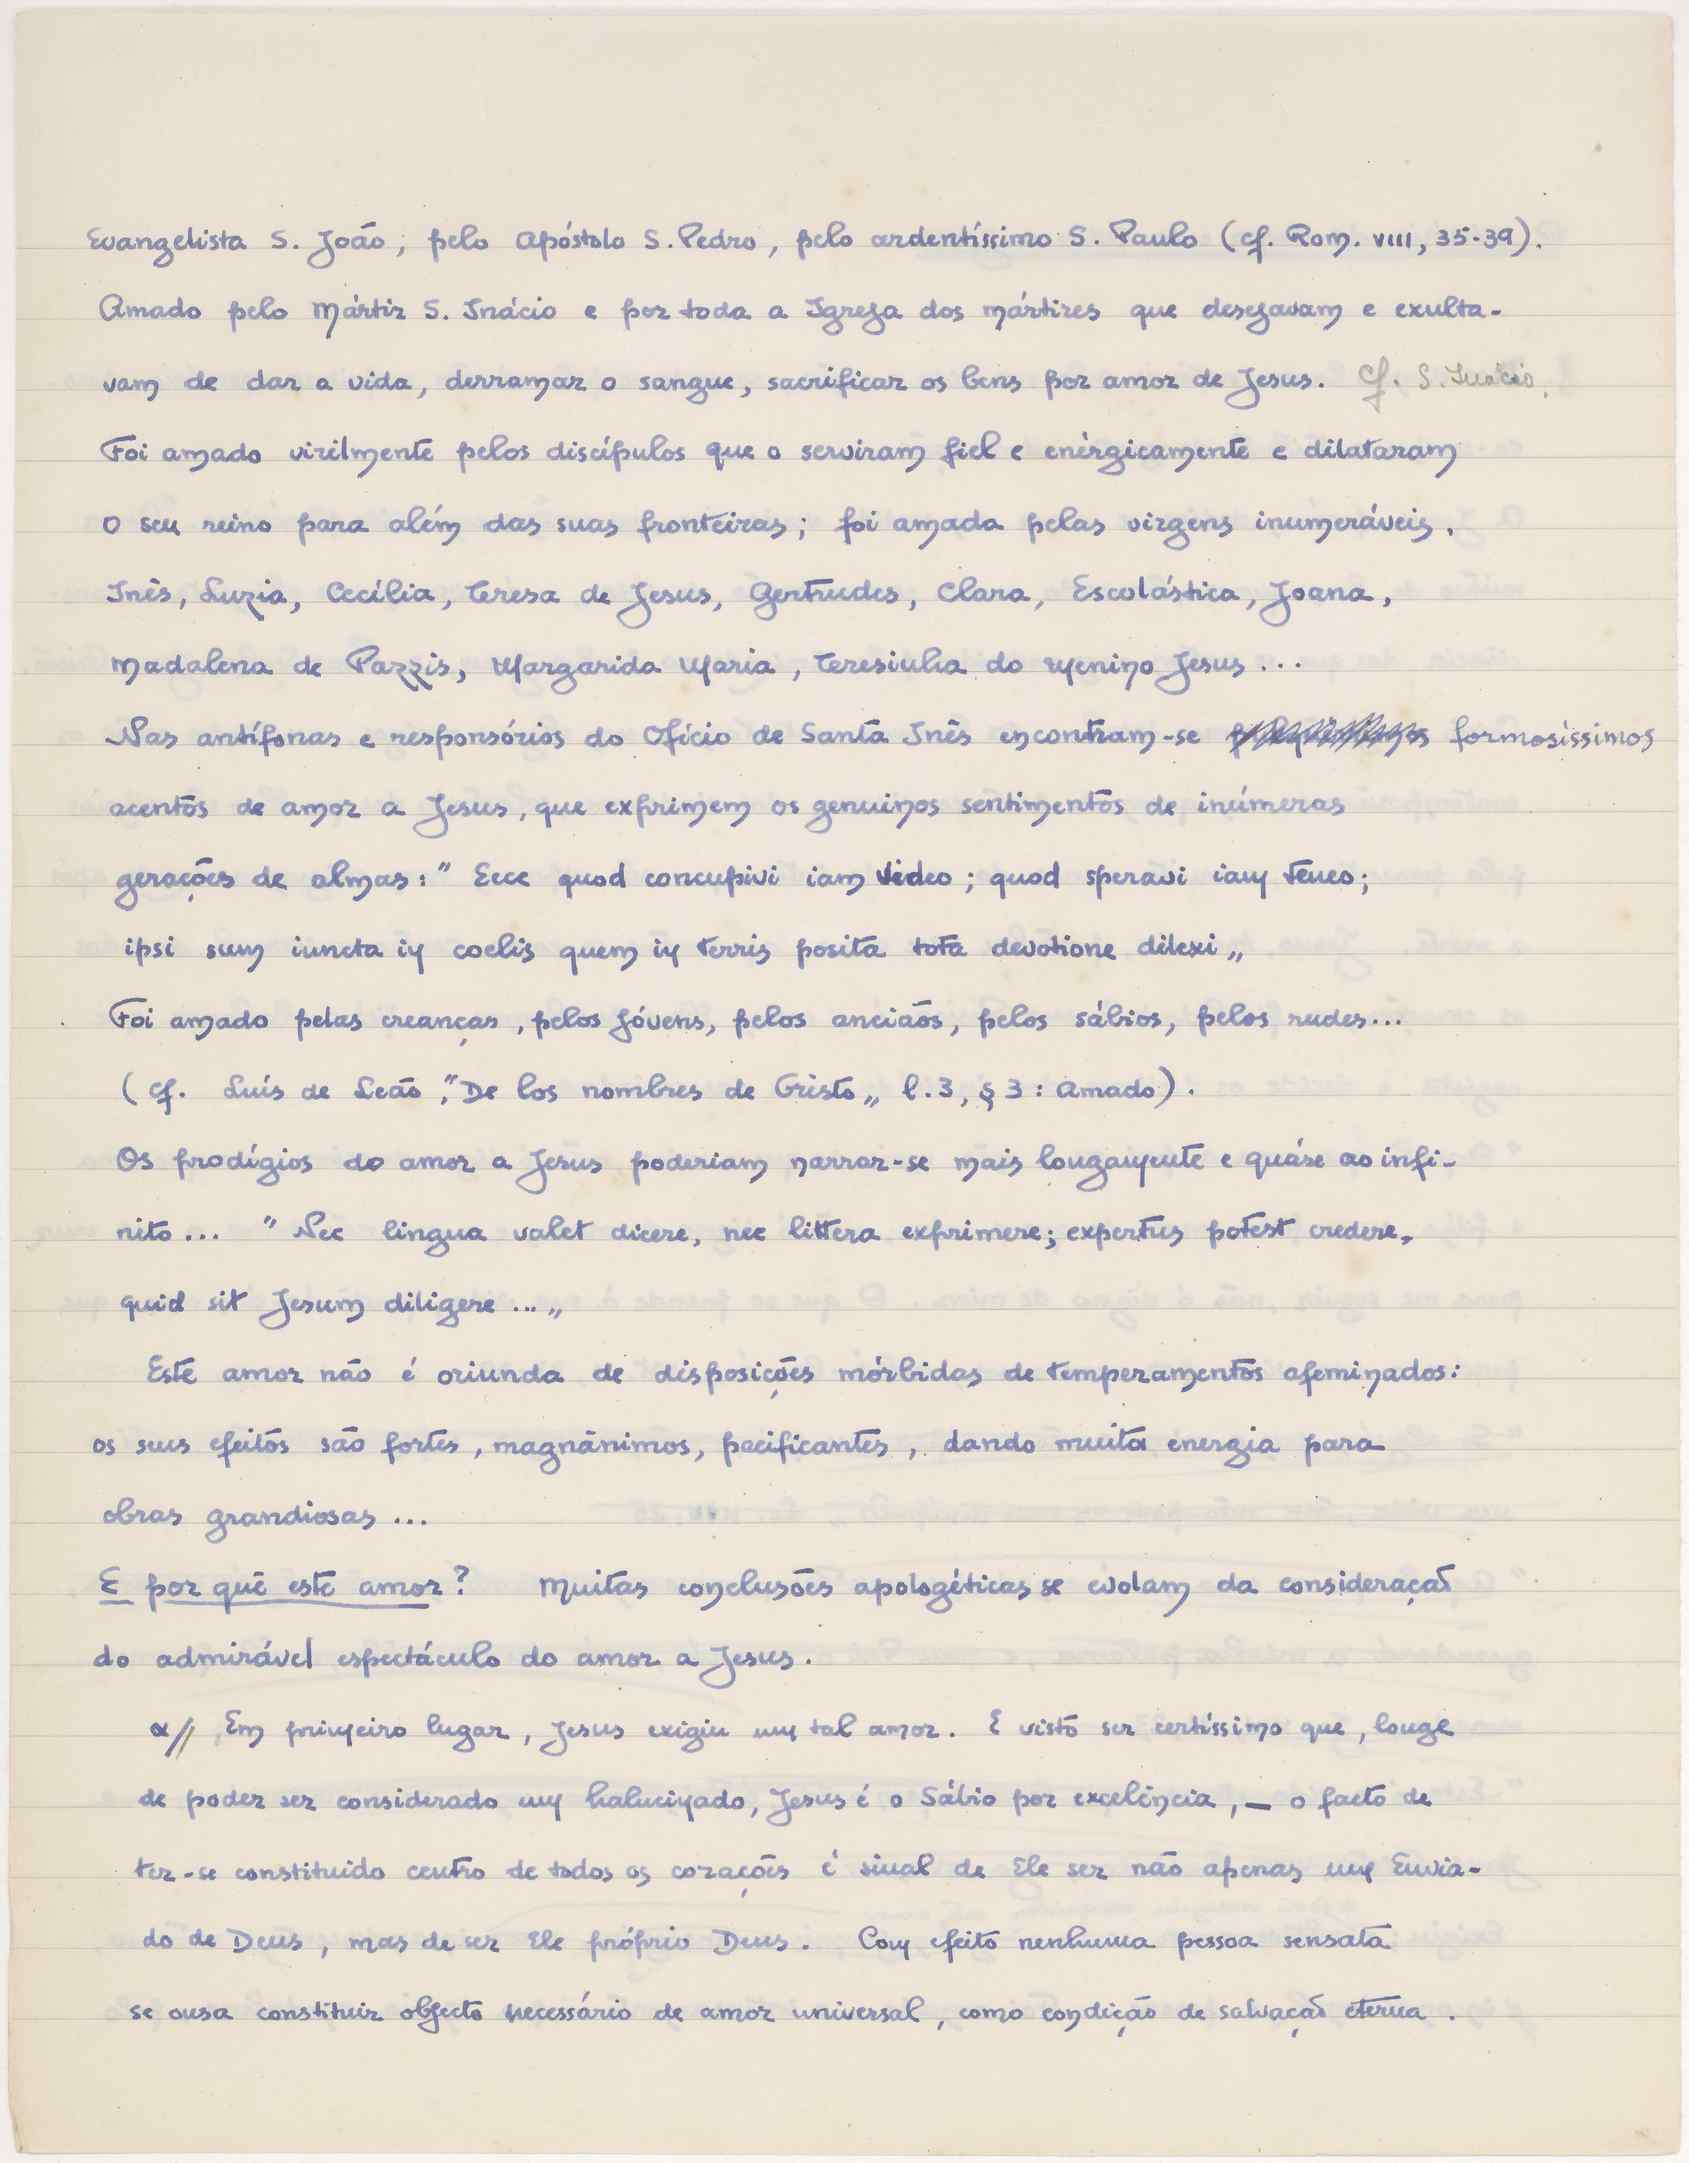 Evangelista S. João, pelo Apóstolo S. Pedro, pelo ardentíssimo S. Paulo (cf. Rom. VIII, 35-39).
Amado pelo Mártir S. Inácio e por toda a Igreja dos mártires que desejavam e exulta-
vam de dar a vida, derramar o sangue, sacrificar os bens por amor de Jesus. Cf. S. Inácio.
Foi amado virilmente pelos discípulos que o serviram fiel e enèrgicamente e dilataram
o seu reino para além das suas fronteiras; foi amada pelas virgens inumeráveis.
Inês, Luzia, Cecília, Teresa de Jesus, Gertrudes, Clara, Escolástica, Joana,
Madalena de Pazzis, Margarida Maria, Teresinha do Menino Jesus...
Nas antífonas e responsórios do Ofício de Santa Inês encontram-se formosíssimos
acentos de amor a Jesus, que exprimem os genuinos sentimentos de inúmeras
gerações de almas: "Ecce quod concupivi iam video; quod speravi iam teneo;
ipsi sum iuncta in coelis quem in terris posita tota devotione dilexi„
Foi amado pelas creanças, pelos jóvens, pelos anciãos, pelos sábios, pelos rudes...
(cf. Luís de Leão, "De los nombres de Cristo„ l. 3, § 3: Amado).
Os prodígios do amor a Jesus poderiam narrar-se mais longamente e quáse ao infi-
nito... "Nec lingua valet dicere, nec littera exprimere; expertus potest credere,
quid sit Jesum diligere...„
Este amor não é oriunda de disposições mórbidas de temperamentos afeminados:
os seus efeitos são fortes, magnânimos, pacificantes, dando muita energia para
obras grandiosas...
E por quê este amor? Muitas conclusões apologéticas se evolam da consideração
do admirável espectáculo do amor a Jesus.
α// Em primeiro lugar, Jesus exigiu um tal amor. E visto ser certíssimo que, longe
de poder ser considerado um halucinado, Jesus é o Sábio por excelência, — o facto de
ter-se constituido centro de todos os corações é sinal de Ele ser não apenas um Envia-
do de Deus, mas de ser Ele próprio Deus. Com efeito nenhuma pessoa sensata
se ousa constituir objecto necessário de amor universal, como condição de salvação eterna.